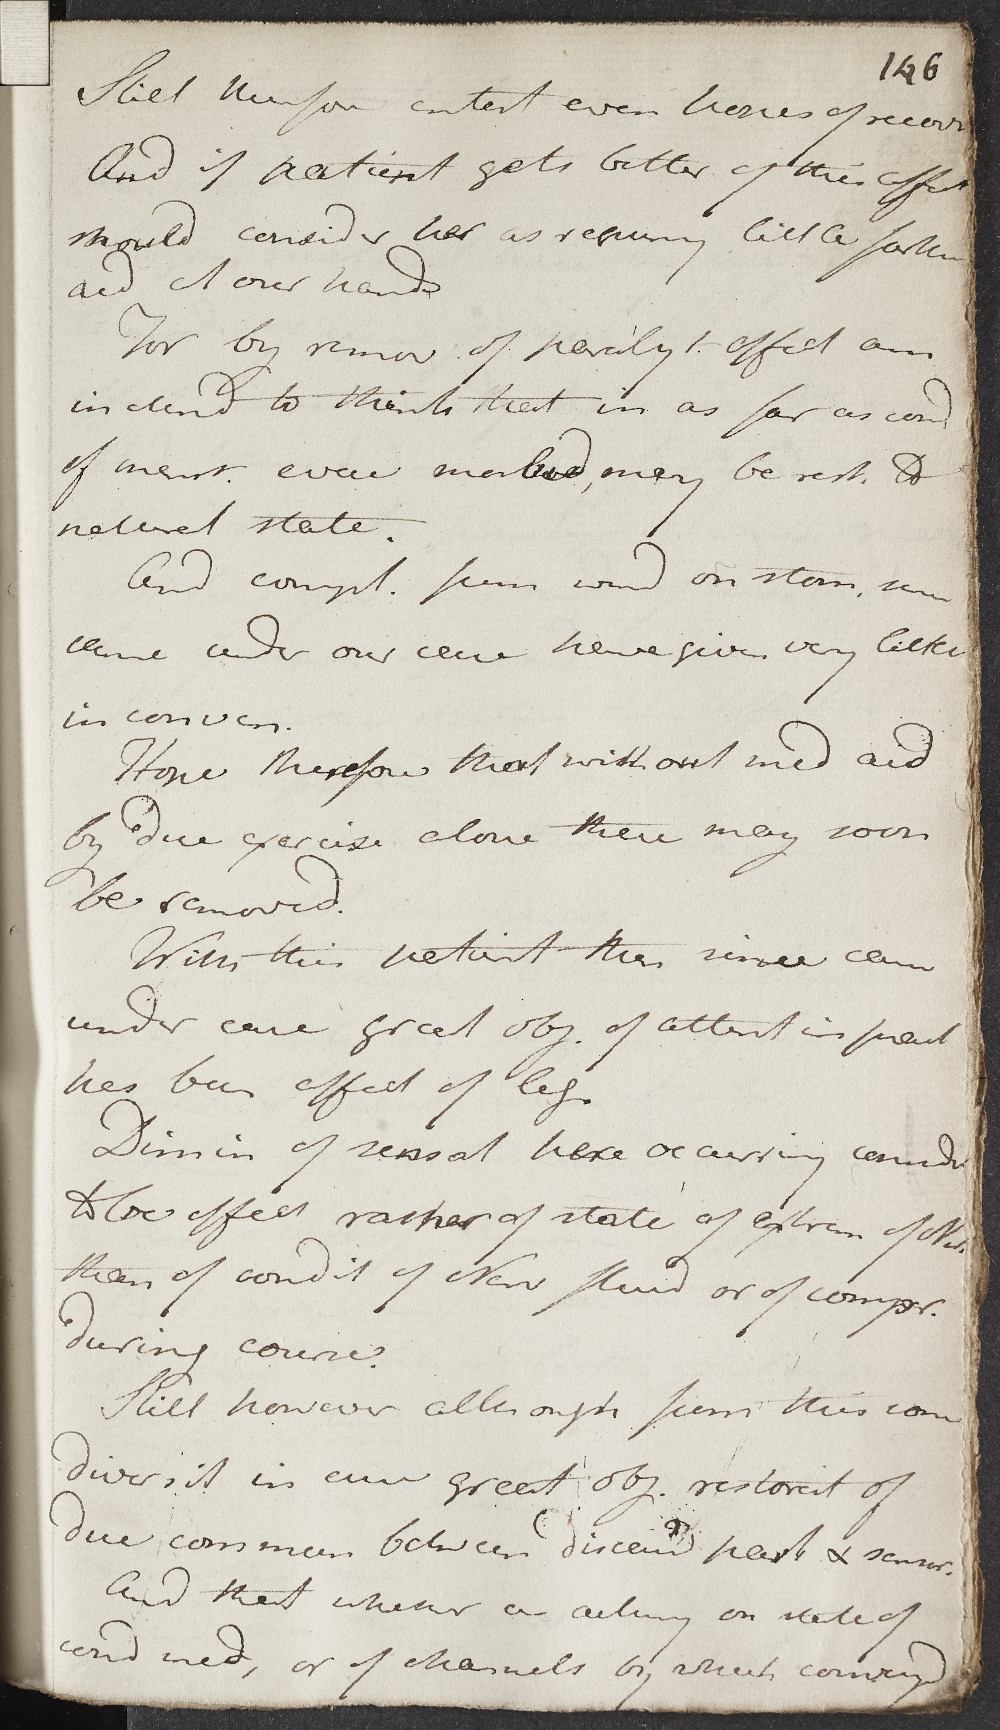 146
Still therefore entert even hopes of recov
And if patient gets better of this affect
should consider her as requiring little farther
aid at our hands
For by remov. of paralyt. affect am
inclend to think that in as far as cond
of menst. even morbid, may be rest. to
natural state.
And compl. from wind on stom. since
came under our care have given very little
in conven.
Hope therefore that without med aid
by due exercise alone these may soon
be removed.
With this patient then since came
under care great obj. of attent in pract
has been affect of leg.
Dimin of sensat here occurring consider
to be effect rather of state of extrem of Nerv.
than of condit of Nerv fluid or of compr.
during course.
Still however although from this some
diversit in cure great obj. restorat of
due commun between diseased part & sensor.
And that whether as acting on state of
cond med, or of channels by which conveyd